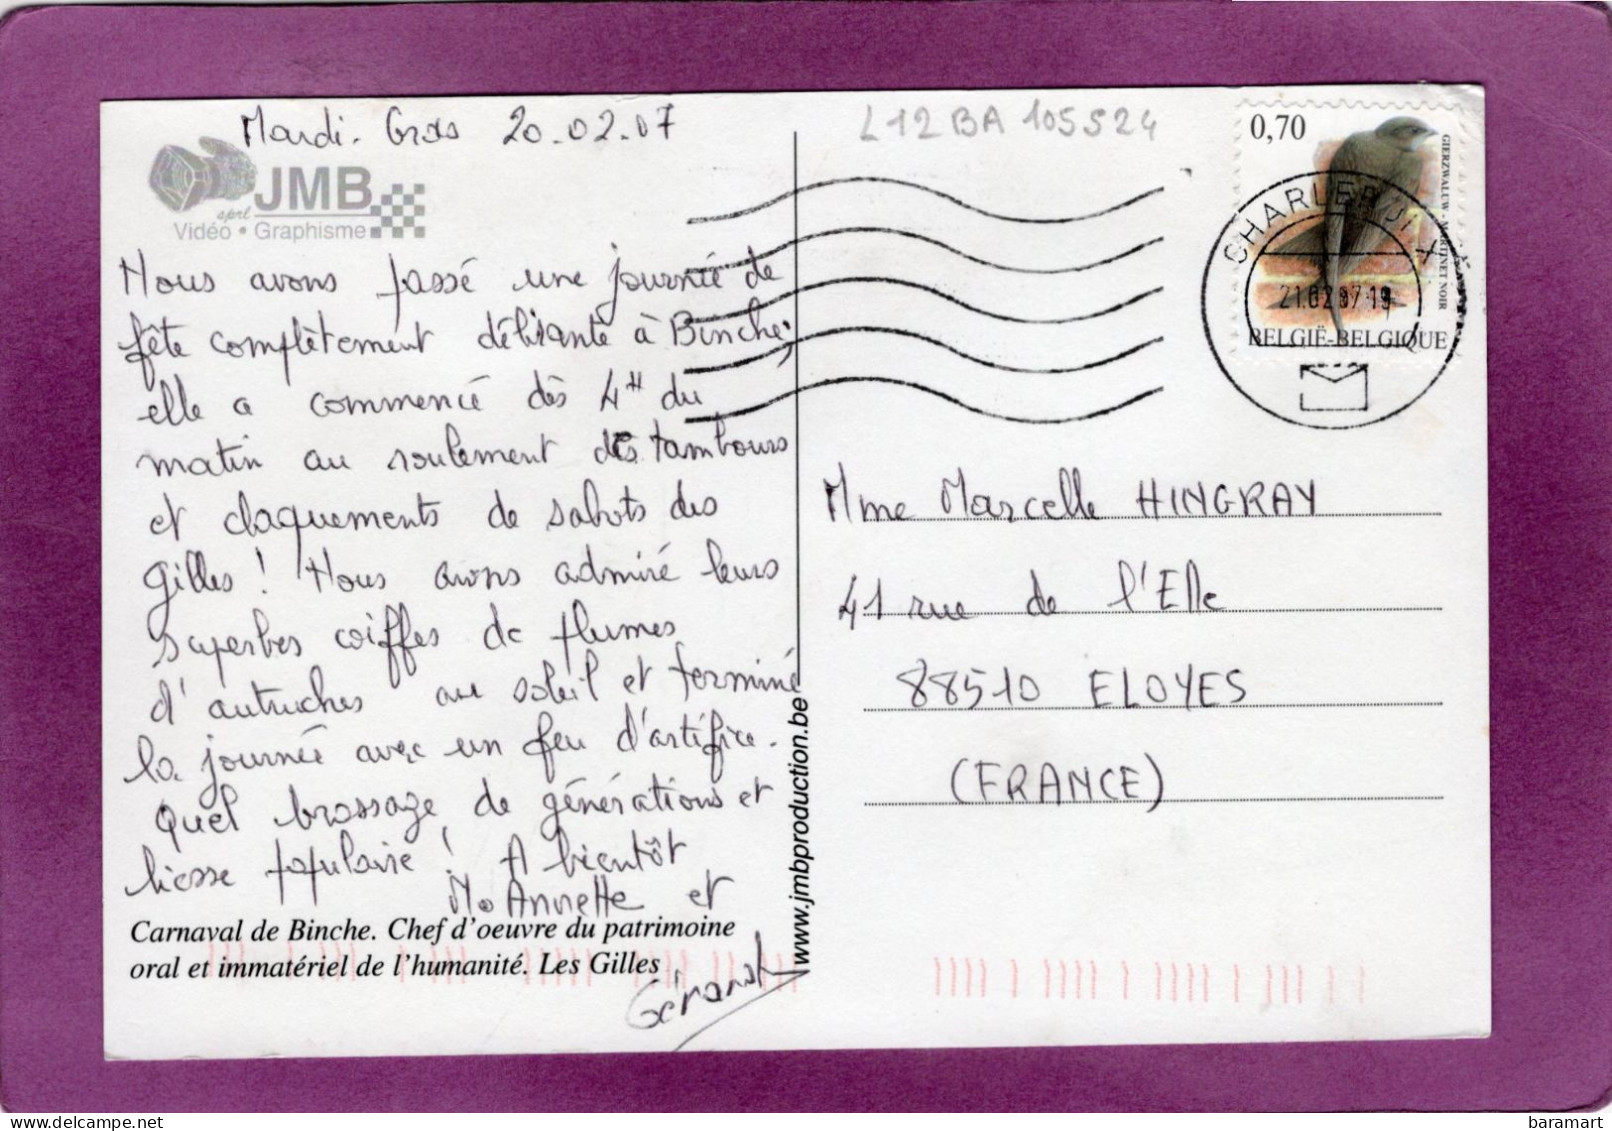 Mardi-Gras 20.02.07
L12BA 105524
JMB
sprl
Vidéo • Graphisme
0,70
GIERZWALUW - MARTINET NOIR
CHARLEROI X
21.02 07-19
BELGIË-BELGIQUE
Nous avons passé une journée de
fête complètement délirante à Binche;
elle a commencé dès 4H du
matin au roulement des tambours
et claquements de sabots des
Gilles ! Nous avons admiré leurs
superbes coiffes de plumes
d'autruches au soleil et terminé
la journée avec un feu d'artifice.
Quel brassage de générations et
liesse populaire ! A bientôt
M. Annette et
Gérard
Carnaval de Binche. Chef d'oeuvre du patrimoine
oral et immatériel de l'humanité. Les Gilles
www.jmbproduction.be
Mme Marcelle HINGRAY
41 rue de l'Elle
88510 ELOYES
(FRANCE)
baramart